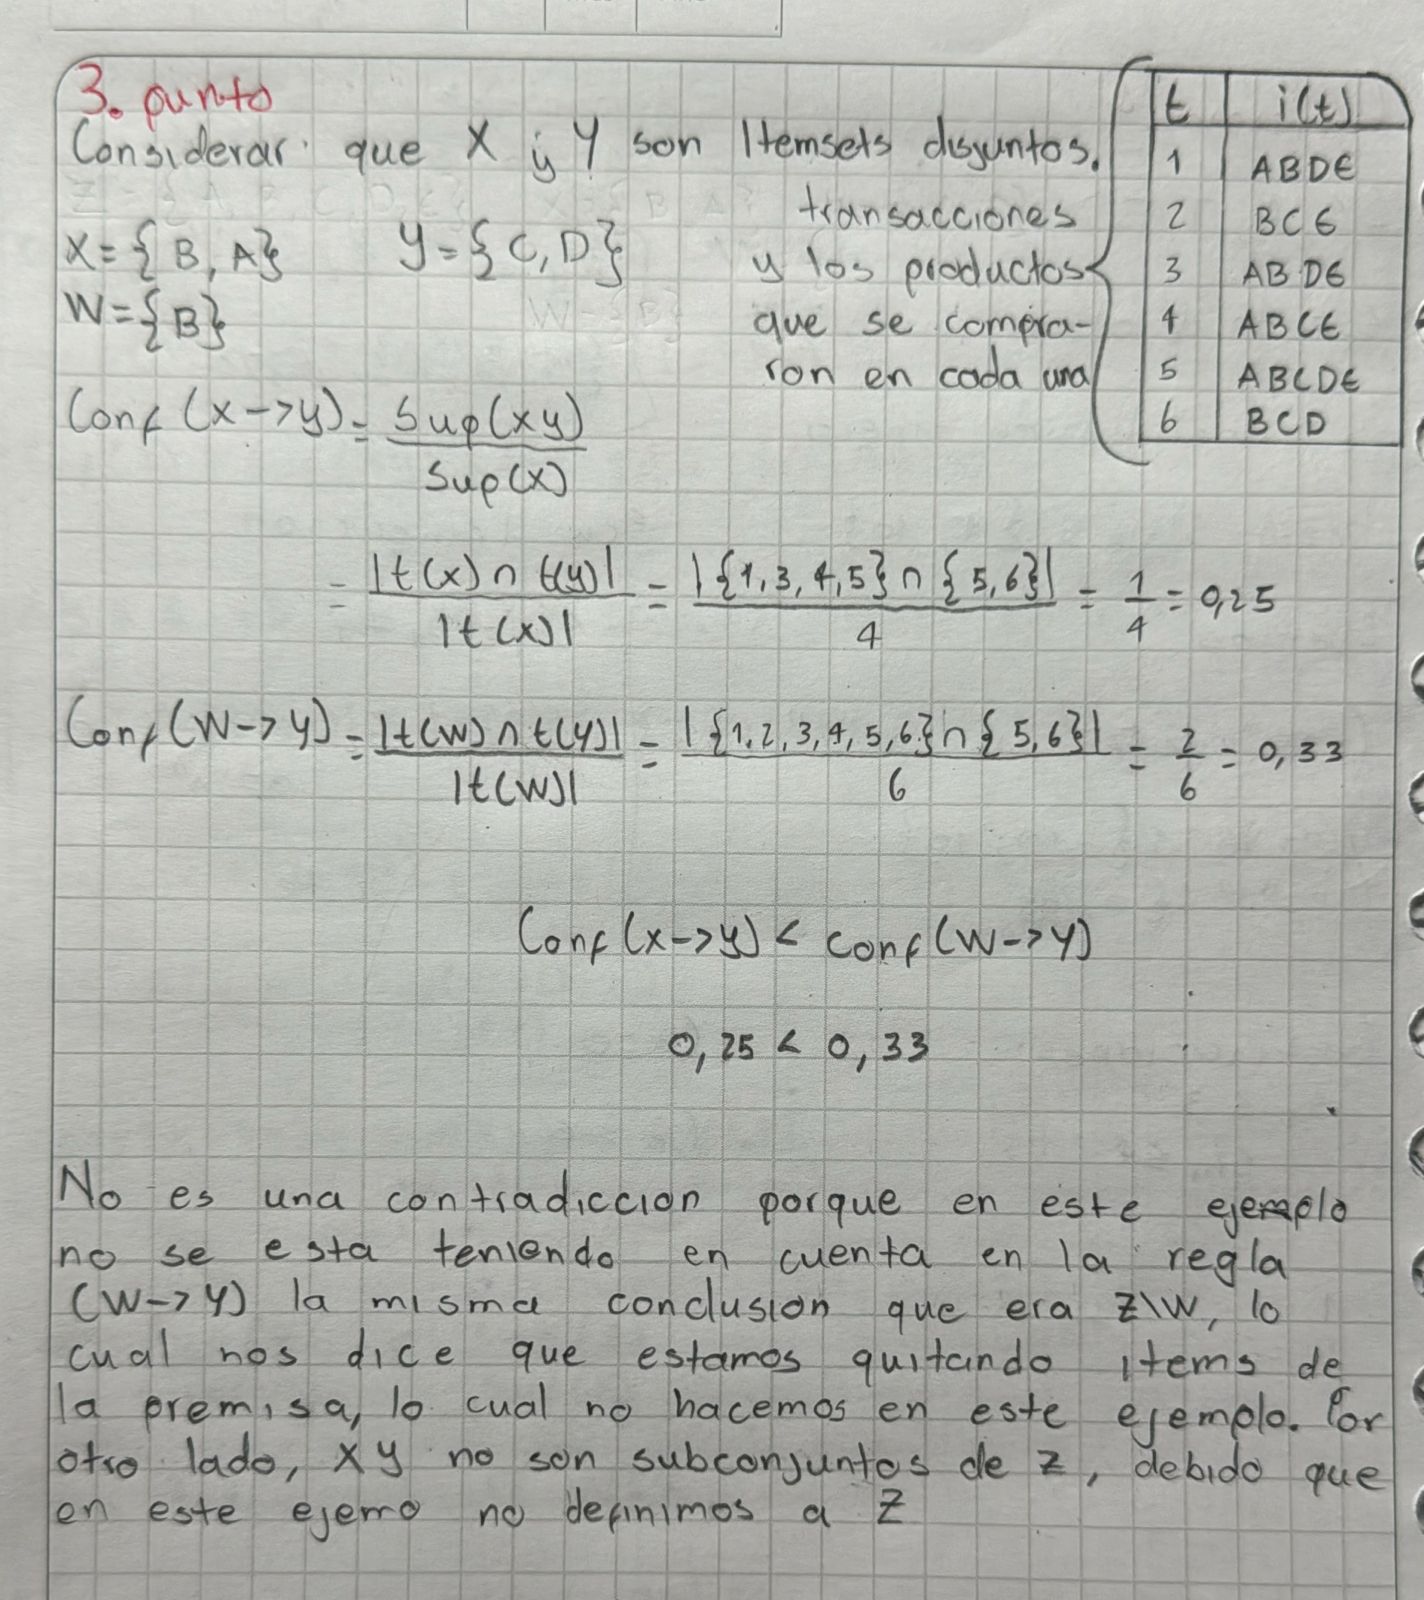 3. punto
Considerar que X y Y son Itemsets disjuntos.
X={B,A} Y={C,D}
W={B}
transacciones
y los productos
que se compra-
ron en cada una
t i(t)
1 ABDE
2 BCE
3 ABDE
4 ABCE
5 ABCDE
6 BCD
Conf(X->Y) = Sup(XY) / Sup(X)
= |t(X) ∩ t(Y)| / |t(X)| = |{1,3,4,5} ∩ {5,6}| / 4 = 1/4 = 0,25
Conf(W->Y) = |t(W) ∩ t(Y)| / |t(W)| = |{1,2,3,4,5,6} ∩ {5,6}| / 6 = 2/6 = 0,33
Conf(X->Y) < conf(W->Y)
0,25 < 0,33
No es una contradiccion porque en este ejemplo
no se esta teniendo en cuenta en la regla
(W->Y) la misma conclusion que era Z\W, lo
cual nos dice que estamos quitando items de
la premisa, lo cual no hacemos en este ejemplo. Por
otro lado, XY no son subconjuntos de Z, debido que
en este ejemo no definimos a Z